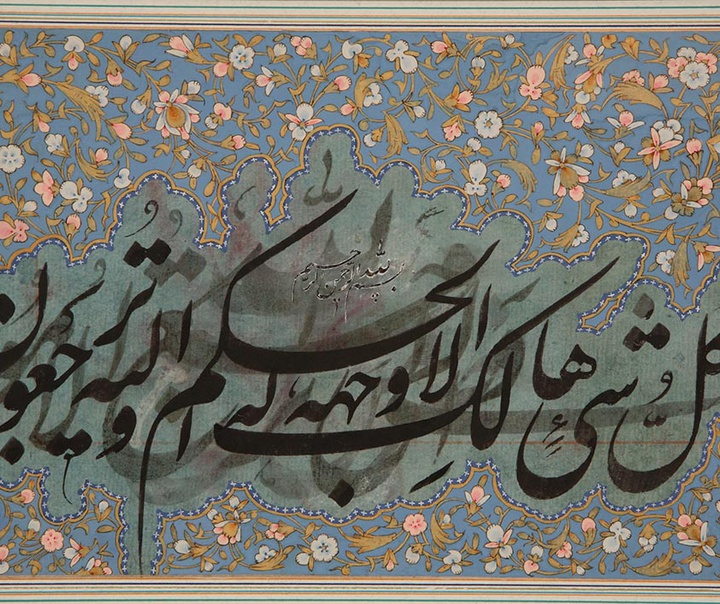 بسم الله الرحمن الرحيم
كل شئ هالك الا وجهه له الحكم و اليه ترجعون